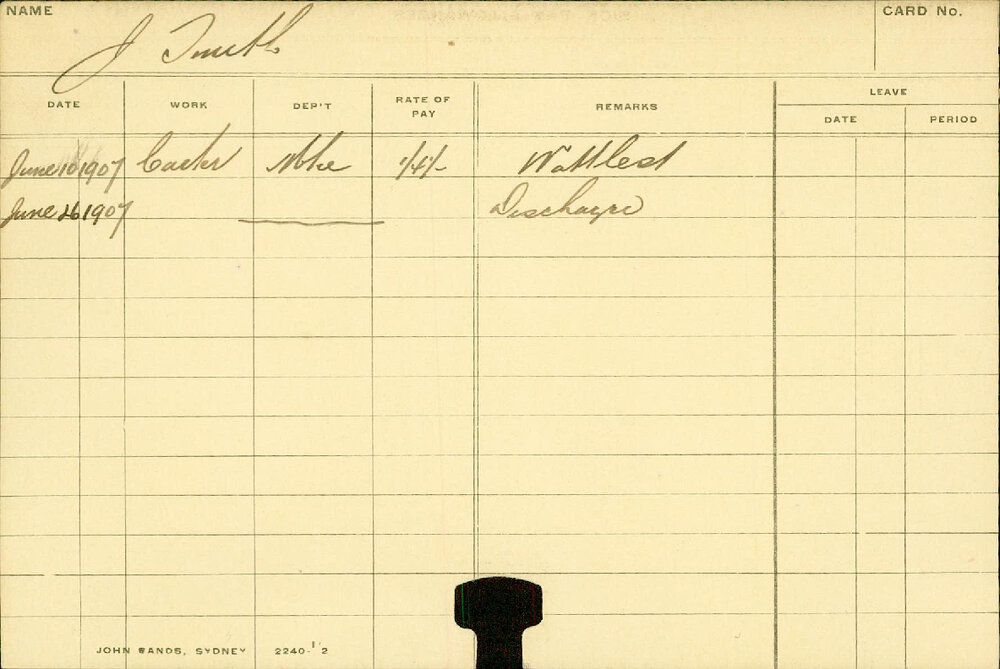 NAME J Smith CARD No.
DATE WORK DEP'T RATE OF PAY REMARKS LEAVE
DATE PERIOD
June 10 1907 Carter 1/4/- Wattle st
June 26 1907 Discharge
JOHN SANDS, SYDNEY 2240-1'2